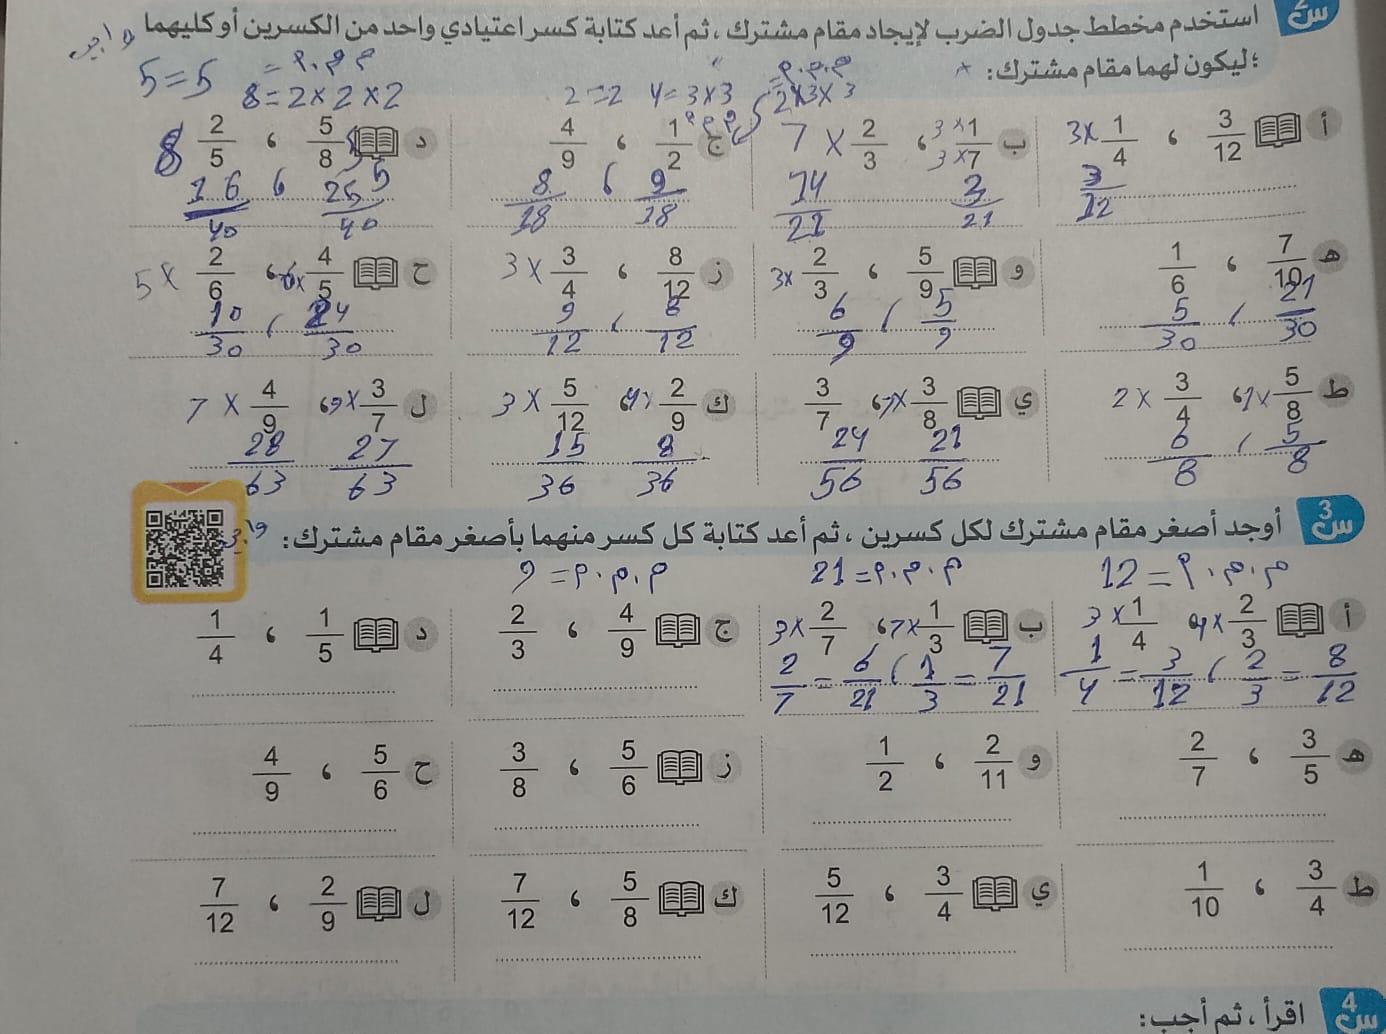 س2 استخدم مخطط جدول الضرب لإيجاد مقام مشترك، ثم أعد كتابة كسر اعتيادي واحد من الكسرين أو كليهما واجب
؛ليكون لهما مقام مشترك:
م.م.م = 2×3×3
9=3×3 2=2
م.م.م =
8=2×2×2 5=5
أ 3/12 ، 1/4 ×3
3/12
ب 3×1/3×7 ، 2/3 × 7
3/21 14/21
ج 1/2 ، 4/9
9/18 ، 8/18
د 5/8 ، 2/5 8
5
25/40 ، 16/40
هـ 7/10 ، 1/6
21/30 ، 5/30
و 5/9 ، 2/3 ×3
5/9 ، 6/9
ز 8/12 ، 3/4 × 3
8/12 ، 9/12
ح 4/5 ×6 ، 2/6 × 5
24/30 ، 10/30
ط 5/8 ×1 ، 3/4 × 2
5/8 ، 6/8
ي 3/8 ×7 ، 3/7
21/56 24/56
ك 2/9 ×4 ، 5/12 × 3
8/36 15/36
ل 3/7 ×9 ، 4/9 × 7
27/63 28/63
س3 أوجد أصغر مقام مشترك لكل كسرين ، ثم أعد كتابة كل كسر منهما بأصغر مقام مشترك:
م.م.م = 12
م.م.م = 21
م.م.م = 9
أ 2/3 ×4 ، 1/4 × 3
1/4 = 3/12 ، 2/3 = 8/12
ب 1/3 ×7 ، 2/7 ×3
2/7 = 6/21 ، 1/3 = 7/21
ج 4/9 ، 2/3
د 1/5 ، 1/4
هـ 3/5 ، 2/7
و 2/11 ، 1/2
ز 5/6 ، 3/8
ح 5/6 ، 4/9
ط 3/4 ، 1/10
ي 3/4 ، 5/12
ك 5/8 ، 7/12
ل 2/9 ، 7/12
س4 اقرأ ، ثم أجب: